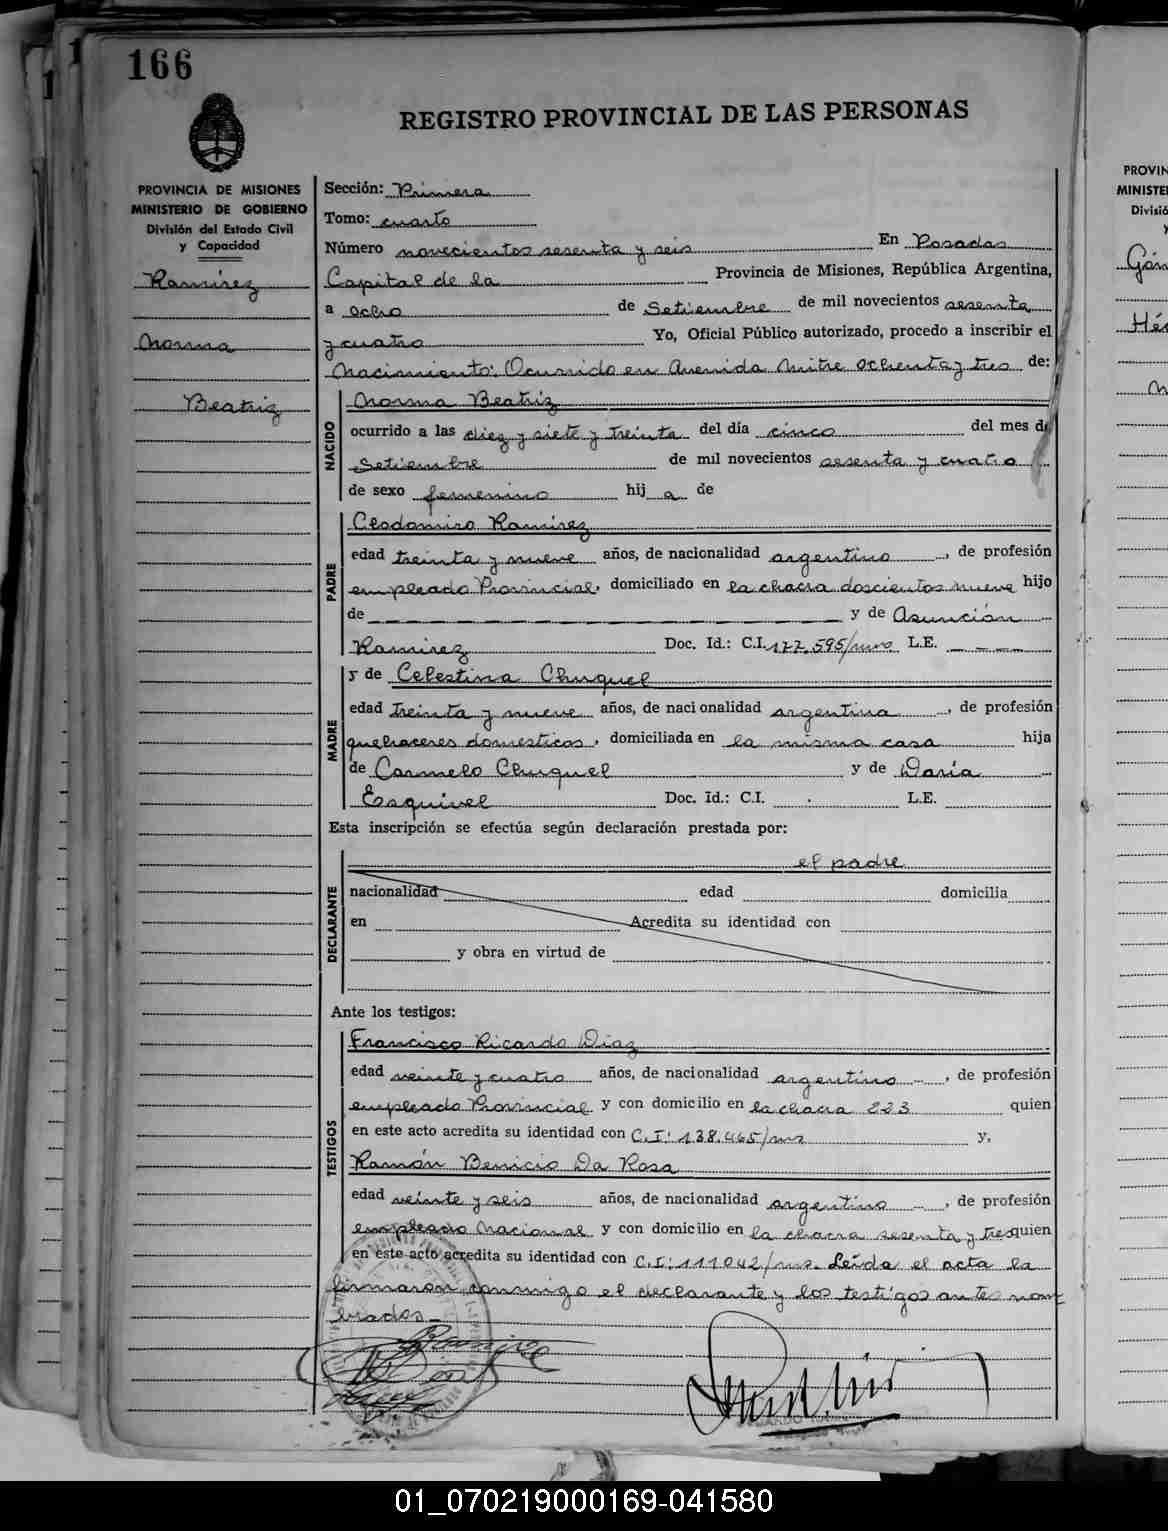 166
REGISTRO PROVINCIAL DE LAS PERSONAS
PROVINCIA DE MISIONES
MINISTERIO DE GOBIERNO
División del Estado Civil
y Capacidad
Ramírez
Norma
Beatriz
Sección: Primera
Tomo: cuarto
Número novecientos sesenta y seis En Posadas
Capital de la Provincia de Misiones, República Argentina,
a ocho de Setiembre de mil novecientos sesenta
y cuatro Yo, Oficial Público autorizado, procedo a inscribir el
Nacimiento: Ocurrido en Avenida Mitre ochenta y tres de:
NACIDO
Norma Beatriz
ocurrido a las diez y siete y treinta del día cinco del mes de
Setiembre de mil novecientos sesenta y cuatro
de sexo femenino hij a de
PADRE
Clodomiro Ramirez
edad treinta y nueve años, de nacionalidad argentino, de profesión
empleado Provincial, domiciliado en la chacra doscientos nueve hijo
de — — — — — — — — — — — — — y de Asunción
Ramirez Doc. Id.: C.I. 177.595/mnes L.E. — — — —
MADRE
y de Celestina Chuquel
edad treinta y nueve años, de nacionalidad argentina, de profesión
quehaceres domesticos, domiciliada en la misma casa hija
de Carmelo Chuquel y de Daría
Esquivel Doc. Id.: C.I. L.E.
Esta inscripción se efectúa según declaración prestada por:
DECLARANTE
el padre
nacionalidad edad domicilia
en Acredita su identidad con
y obra en virtud de
Ante los testigos:
TESTIGOS
Francisco Ricardo Diaz
edad veinte y cuatro años, de nacionalidad argentino, de profesión
empleado Provincial y con domicilio en la chacra 223 quien
en este acto acredita su identidad con C.I: 138.465/mz y,
Ramón Benicio Da Rosa
edad veinte y seis años, de nacionalidad argentino, de profesión
empleado Nacional y con domicilio en la chacra sesenta y tres quien
en este acto acredita su identidad con C.I: 111042/ms. Leída el acta la
firmaron conmigo el declarante y los testigos antes nom
brados.—
Ramirez
PROVIN
MINISTE
Divisió
y
Góm
Hé
01_070219000169-041580